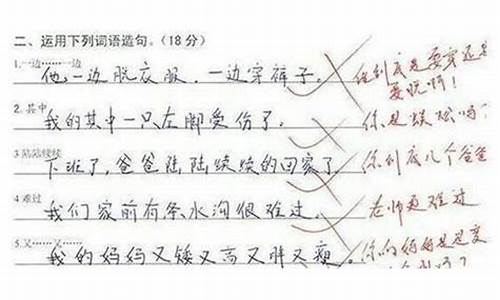 二、运用下列词语造句。(18分)
1.一边……一边
他一边脱衣服，一边穿裤子。
你到底是要穿还是
要脱啊！
2.其中
我的其中一只左脚受伤了。
你是蜈蚣吗？
3.陆陆续续
下班了，爸爸陆陆续续的回家了。
你到底几个爸爸
4.难过
我们家前有条水沟很难过。
老师更难过
5.又……又……
我的妈妈又矮又高又胖又瘦。
你的妈妈是变